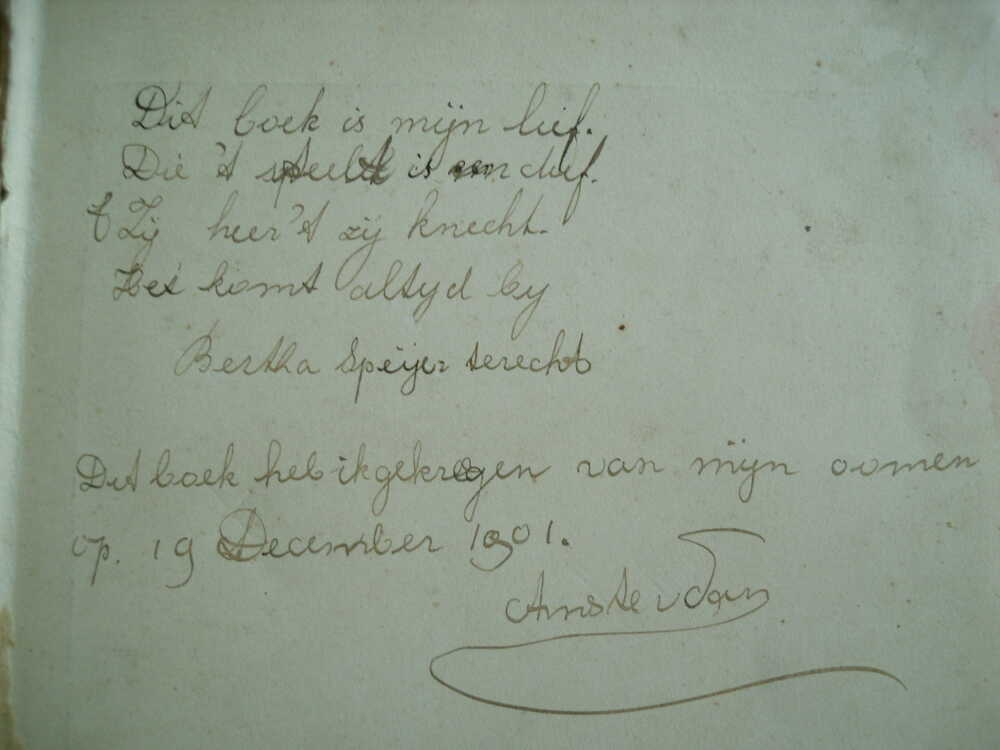 Dit boek is mijn lief.
Die 't steelt is een dief.
't Zij heer 't zij knecht.
Het komt altyd by
Bertha Speijer terecht
Dit boek heb ik gekregen van mijn oomen
op. 19 December 1901.
Amsterdam